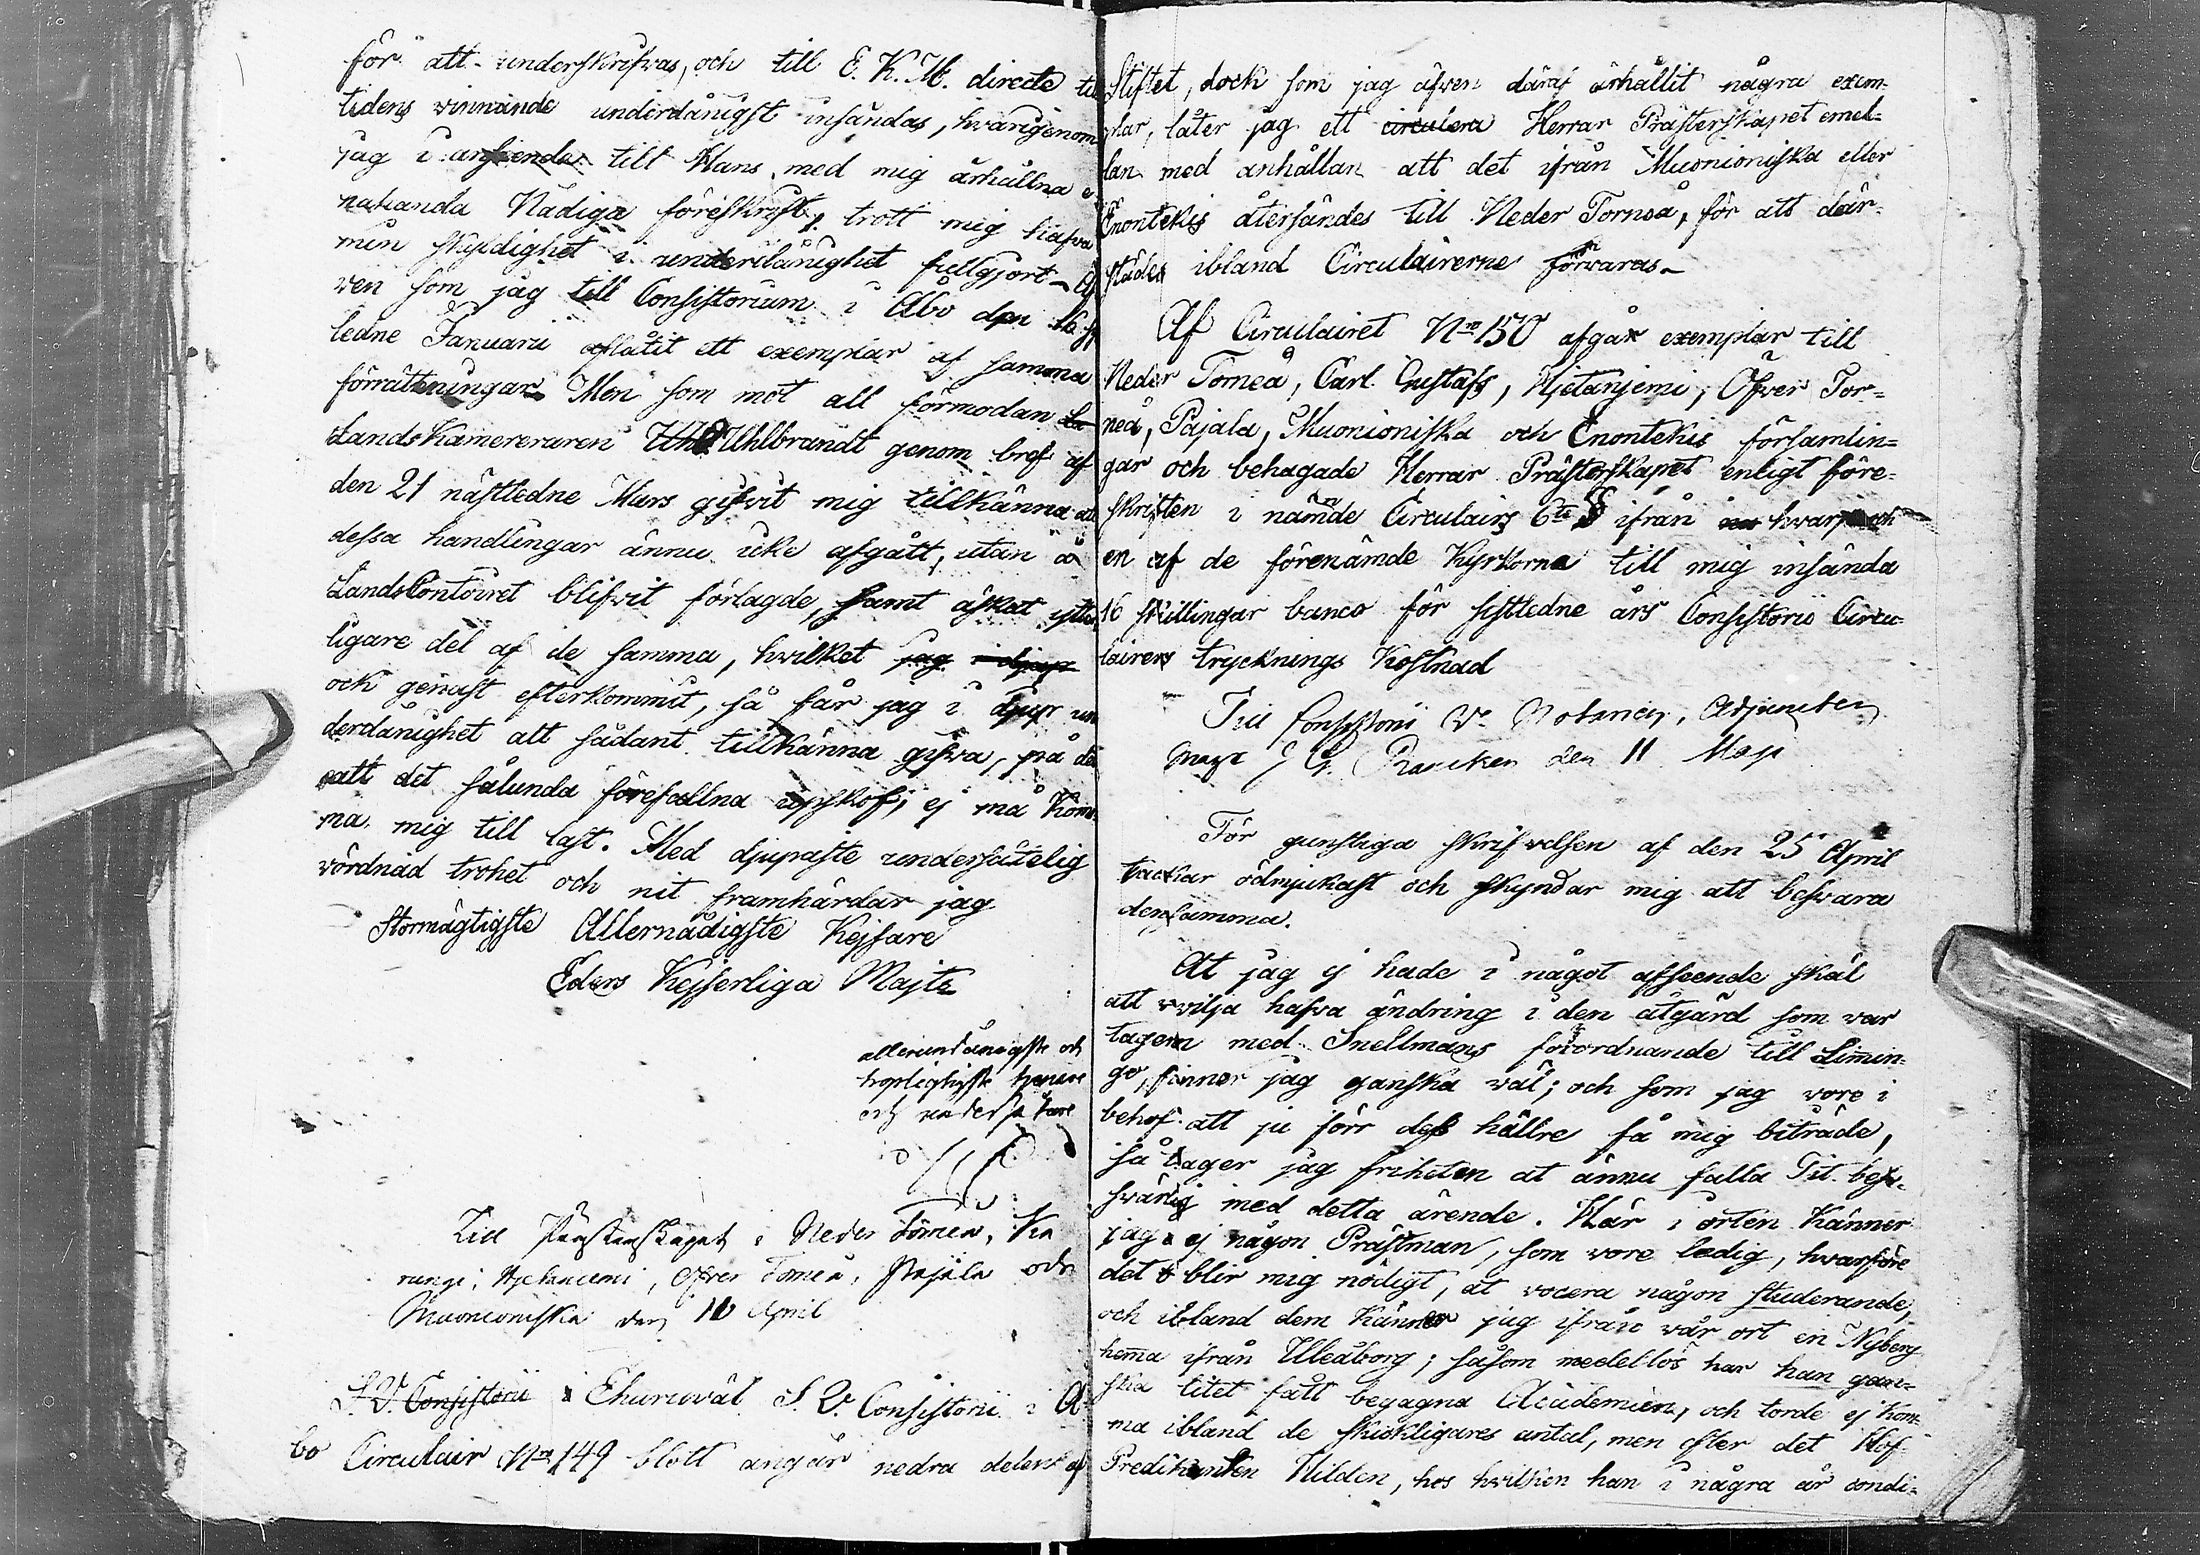 för att underskrifvas, och till E. K. M. directe till
tidens vinnande underdånigst insändas, hvarigenom
jag i anseende till Hans med mig ärhållna
nahanda Nådiga föreskrift, trott mig hafva
min skyldighet i underdånighet fullgjort
ven som jag till Consistorium i Åbo den 16
ledne Januarii aflåtit ett exemplar af samma
förrättningar. Men som mot all förmodan
LandsKamereraren Uhlbrandt genom bref af
den 21 nästledne Mars gifvit mig tillkänna att
dessa handlingar ännu icke afgått, utan å
LandsContoiret blifvit förlagde, samt äskat ytter
ligare del af de samma, hvilket jag
ock genast efterkommit, så får jag i djup un
derdånighet att sådant tillkänna gifva, på då
att det sålunda förefallna upskof, ej må kom
ma mig till last. Med djupaste undersåtelig
vördnad trohet och nit framhärdar jag
Stormägtigste Allernådigste Kejsare
Eders Kejserliga Majts
allerundånigste och
tropligtigste tjenare
och undersåtare
Till Prästerskapet i Neder Torneå, Ka
rungi, Hjetaniemi, Öfver Torneå, Pajala och
Muonioniska den 16 April
S. V. Consistorii Ehuruväl S. V. Consistorii i Å
bo Circulair Nro 149 blott angår nedra delen af
Stiftet, dock som jag äfven däraf ärhållit några exem-
plar, låter jag ett circulera Herrar Prästerskapet emel-
lan med anhållan att det ifrån Muonioniska eller
Enontekis återsändes till Neder Torneå, för att där-
städes ibland Circulairerne förvaras
Af Circulairet Nro 150 afgår exemplar till
Neder Torneå, Carl Gustafs, Hjetanjemi, Öfver Tor-
neå, Pajala, Muonioniska och Enontekis församlin-
gar och behagade Herrar Prästerskapet enligt före-
skriften i nämde Circulairs 6te § ifrån hvar och
en af de förenämde Kyrkorna till mig insända
16 skillingar banco för sistledne års Consistorii Circu-
lairers trycknings Kostnad
Till Consistorii V. Notarien, Adjuncten
Mag. J. G. Rancken den 11 Maji
För gunstiga skrifvelsen af den 25 April
tackar ödmjukast och skyndar mig att besvara
densamma.
At jag ej hade i något afseende skäl
att vilja hafva ändring i den åtgärd som var
tagen med Snellmans förordnande till Limin-
go, finner jag ganska väl; och som jag vore i
behof att ju förr dess hällre få mig biträde,
så tager jag friheten at ännu falla Tit. bes-
svärlig med detta ärende. Här i orten Känner
jag ej någon Prästman, som vore ledig, hvarföre
det blir mig nödigt, at vocera någon studerande,
och ibland dem Känner jag ifrån vår ort en Nyberg
hemma ifrån Uleåborg; såsom medellös har han gan-
ska litet fått begagna Academien, och torde ej kom-
ma ibland de skickligares antal, men efter det Hof-
Predikanten Hilden, hos hvilken han i några år condi-